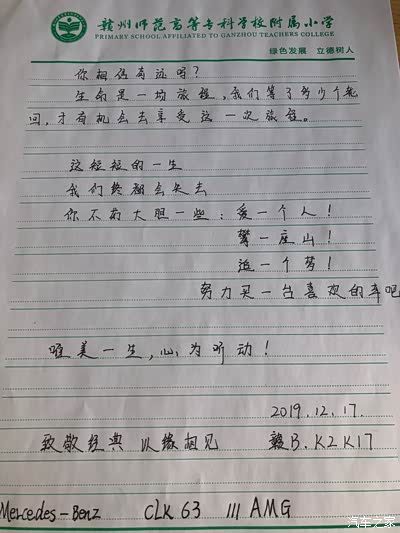 赣州师范高等专科学校附属小学
PRIMARY SCHOOL AFFILIATED TO GANZHOU TEACHERS COLLEGE
绿色发展 立德树人
你相信有运吗?
生命是一场旅程,我们等了多少个轮
回,才有机会去享受这一次旅程。
这短短的一生
我们终都会失去
你不妨大胆一些:爱一个人!
攀一座山!
追一个梦!
努力买一台喜欢的车吧
唯美一生,心为所动!
2019.12.17.
致敬经典 以缘相见 赣B.K2K17
Mercedes-Benz CLK 63 /// AMG
汽车之家